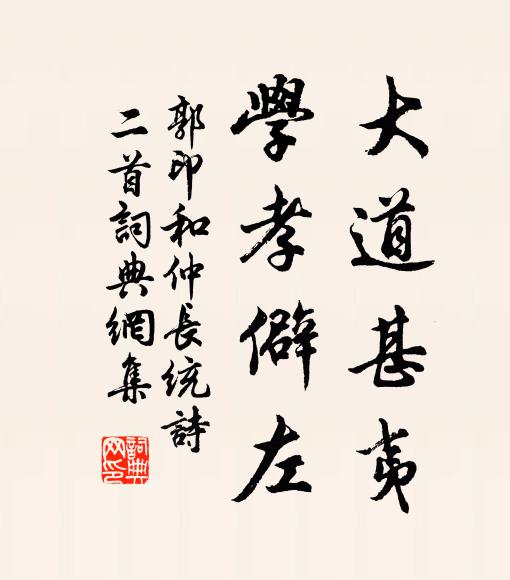 大道甚夷
學孝僻左
郭印和仲長統詩
二首詞典網集
詞典網印